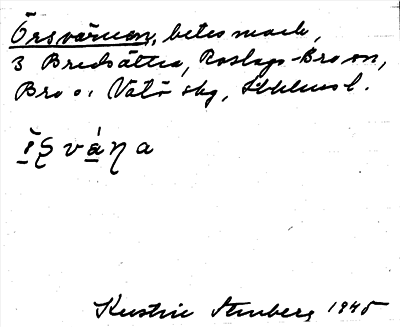 Örsvänan, betesmark,
3 Bredsättra, Roslags-Bro sn,
Bro o. Vätö skg, Sthlms l.
Kerstin Stenberg 1945